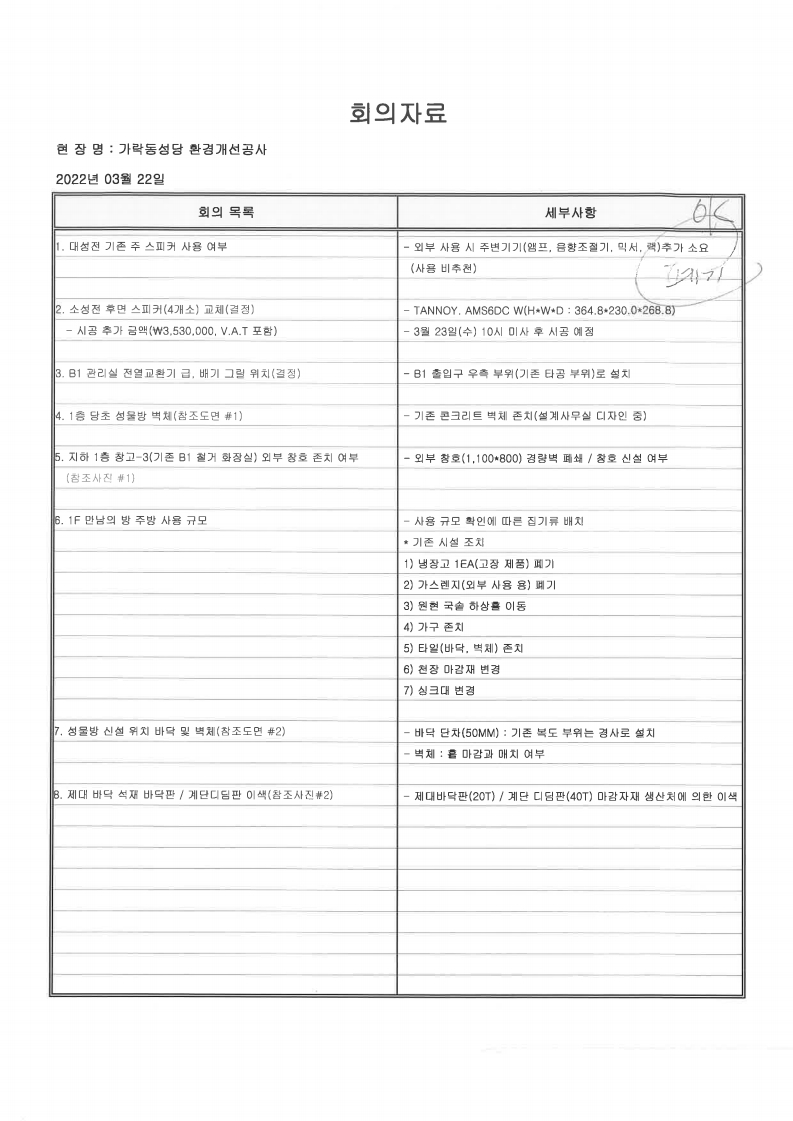 회의자료
현 장 명 : 가락동성당 환경개선공사
2022년 03월 22일
회의 목록
세부사항
OK
1. 대성전 기존 주 스피커 사용 여부
- 외부 사용 시 주변기기(앰프, 음향조절기, 믹서, 랙)추가 소요
(사용 비추천)
2. 소성전 후면 스피커(4개소) 교체(결정)
- TANNOY. AMS6DC W(H*W*D : 364.8*230.0*268.8)
- 시공 추가 금액(₩3,530,000, V.A.T 포함)
- 3월 23일(수) 10시 미사 후 시공 예정
3. B1 관리실 전열교환기 급, 배기 그릴 위치(결정)
- B1 출입구 우측 부위(기존 타공 부위)로 설치
4. 1층 당초 성물방 벽체(참조도면 #1)
- 기존 콘크리트 벽체 존치(설계사무실 디자인 중)
5. 지하 1층 창고-3(기존 B1 철거 화장실) 외부 창호 존치 여부
- 외부 창호(1,100*800) 경량벽 폐쇄 / 창호 신설 여부
(참조사진 #1)
6. 1F 만남의 방 주방 사용 규모
- 사용 규모 확인에 따른 집기류 배치
* 기존 시설 조치
1) 냉장고 1EA(고장 제품) 폐기
2) 가스렌지(외부 사용 용) 폐기
3) 원현 국솥 하상홀 이동
4) 가구 존치
5) 타일(바닥, 벽체) 존치
6) 천장 마감재 변경
7) 싱크대 변경
7. 성물방 신설 위치 바닥 및 벽체(참조도면 #2)
- 바닥 단차(50MM) : 기존 복도 부위는 경사로 설치
- 벽체 : 홀 마감과 매치 여부
8. 제대 바닥 석재 바닥판 / 계단디딤판 이색(참조사진#2)
- 제대바닥판(20T) / 계단 디딤판(40T) 마감자재 생산처에 의한 이색